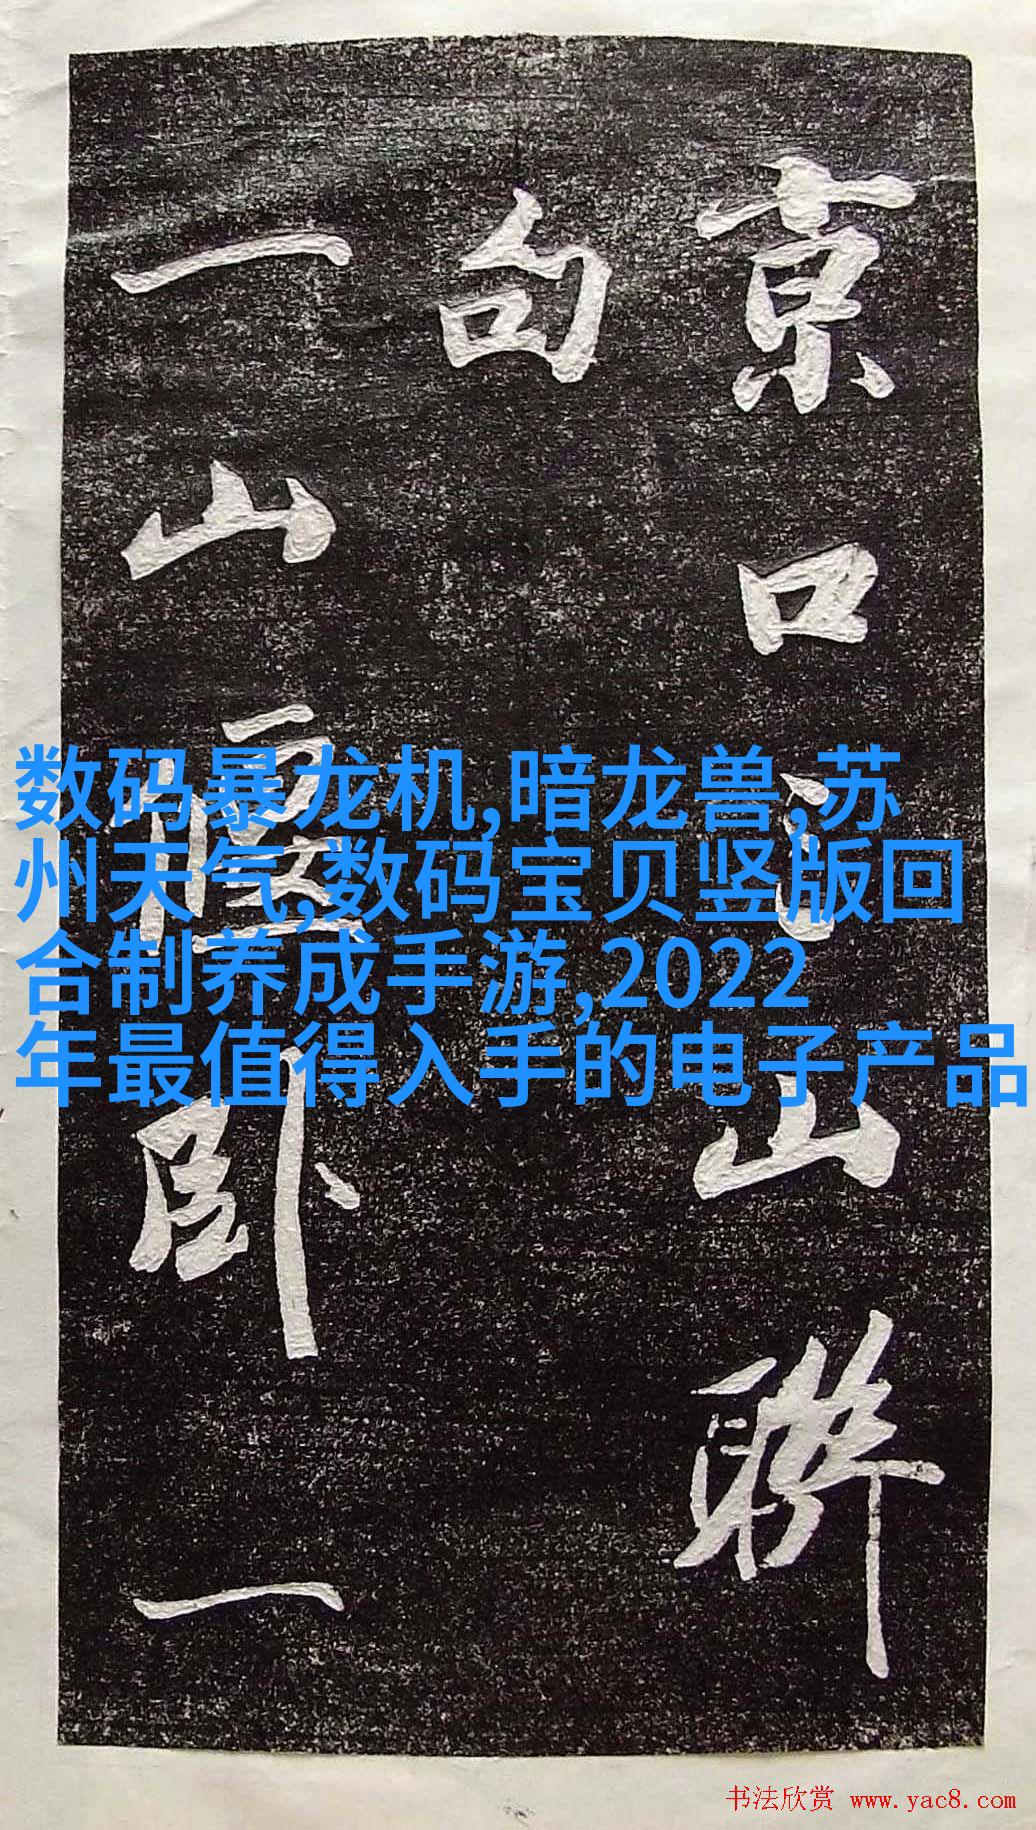 京口江山聯
句
一山偃卧一
数码暴龙机,暗龙兽,苏
州天气,数码宝贝竖版回
合制养成手游,2022
年最值得入手的电子产品
书法欣赏 www.yac8.com